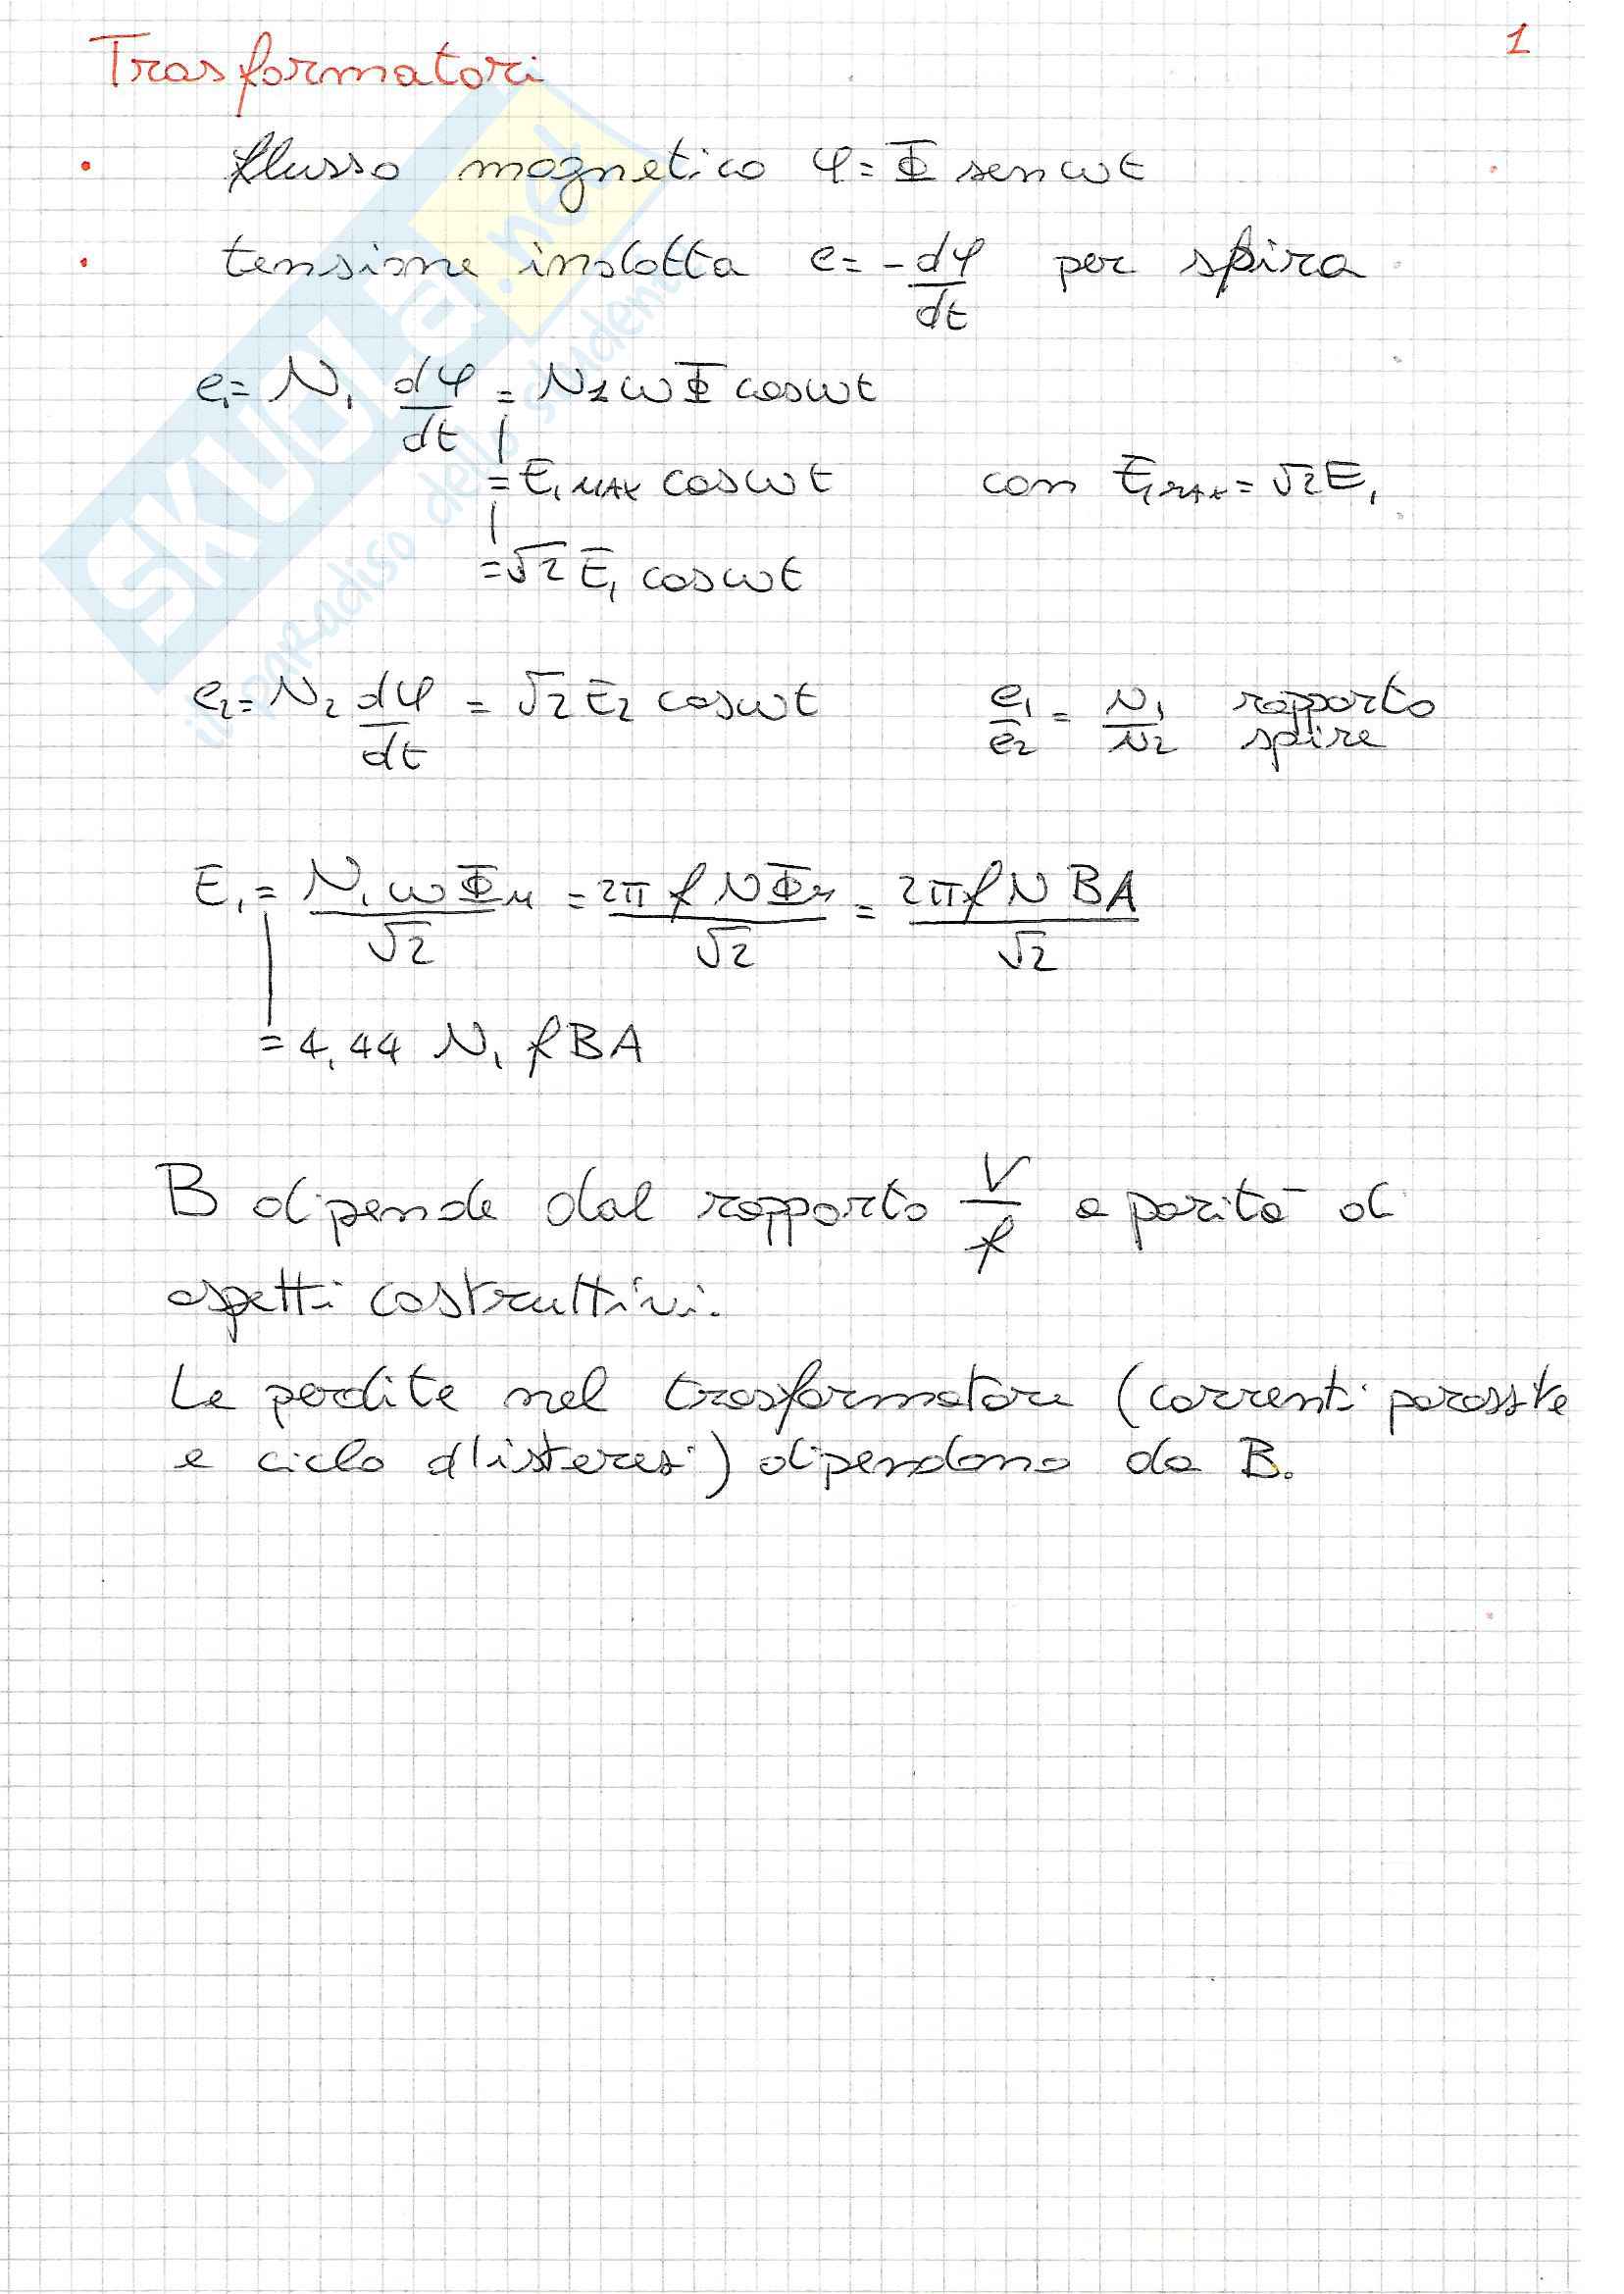 1
Trasformatori
• flusso magnetico φ = Φ sen ωt
• tensione indotta e = -dφ/dt per spira
e₁ = N₁ dφ/dt = N₁ωΦ cosωt
= E₁MAX cosωt con E₁MAX = √2E₁
= √2 E₁ cosωt
e₂ = N₂ dφ/dt = √2 E₂ cosωt e₁/e₂ = N₁/N₂ rapporto spire
E₁ = N₁ωΦM/√2 = 2π f NΦM/√2 = 2πf N BA/√2
= 4,44 N₁ f BA
B dipende dal rapporto V/f a parità di
aspetti costruttivi.
Le perdite nel trasformatore (correnti parassite
e ciclo d'isteresi) dipendono da B.
SKUOla.net
il paradiso dello studente